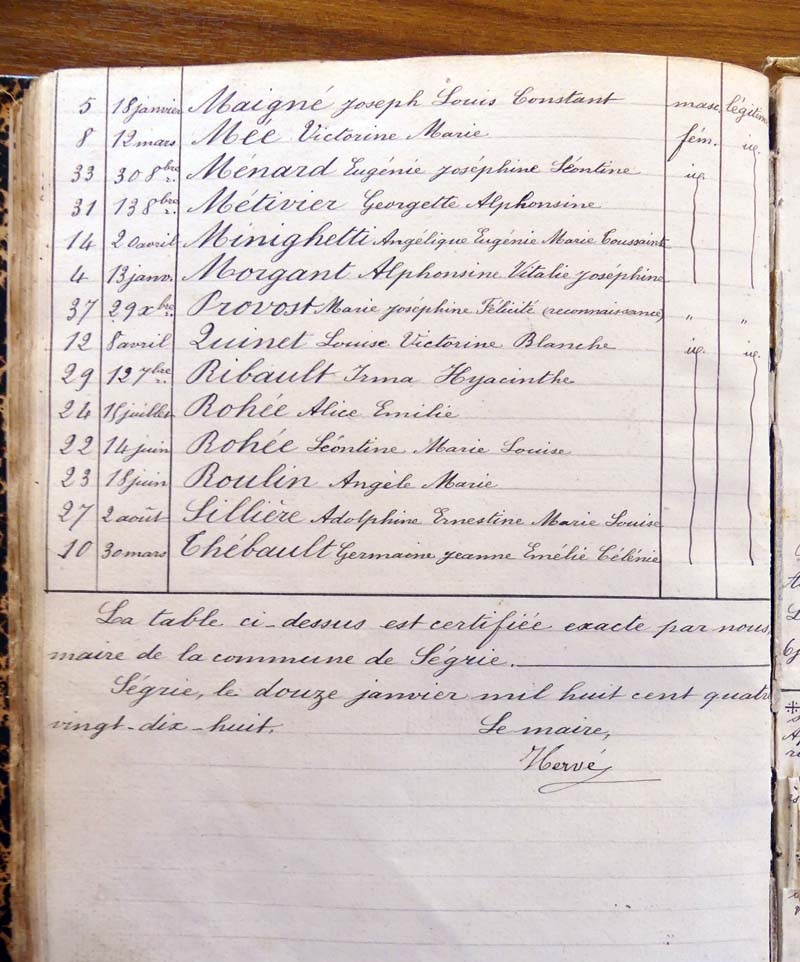 5 18 janvier Maigné Joseph Louis Constant masc. légitime
8 12 mars Méé Victorine Marie fém. id.
33 30 8bre Ménard Eugénie Joséphine Léontine id.
31 13 8bre Métivier Georgette Alphonsine
14 20 avril Minighetti Angélique Eugénie Marie Toussaint
4 13 janv. Morgant Alphonsine Vitalie Joséphine
37 29 xbre Provost Marie Joséphine Félicité (reconnaissance) " "
12 8 avril Quinet Louise Victorine Blanche id. id.
29 12 7bre Ribault Irma Hyacinthe
24 15 juillet Rohée Alice Emilie
22 14 juin Rohée Léontine Marie Louise
23 18 juin Roulin Angèle Marie
27 2 août Sillière Adolphine Ernestine Marie Louise
10 30 mars Thébault Germaine Jeanne Emélie Célénie
La table ci-dessus est certifiée exacte par nous,
maire de la commune de Ségrie.
Ségrie, le douze janvier mil huit cent quatre
vingt-dix-huit. Le maire,
Hervé